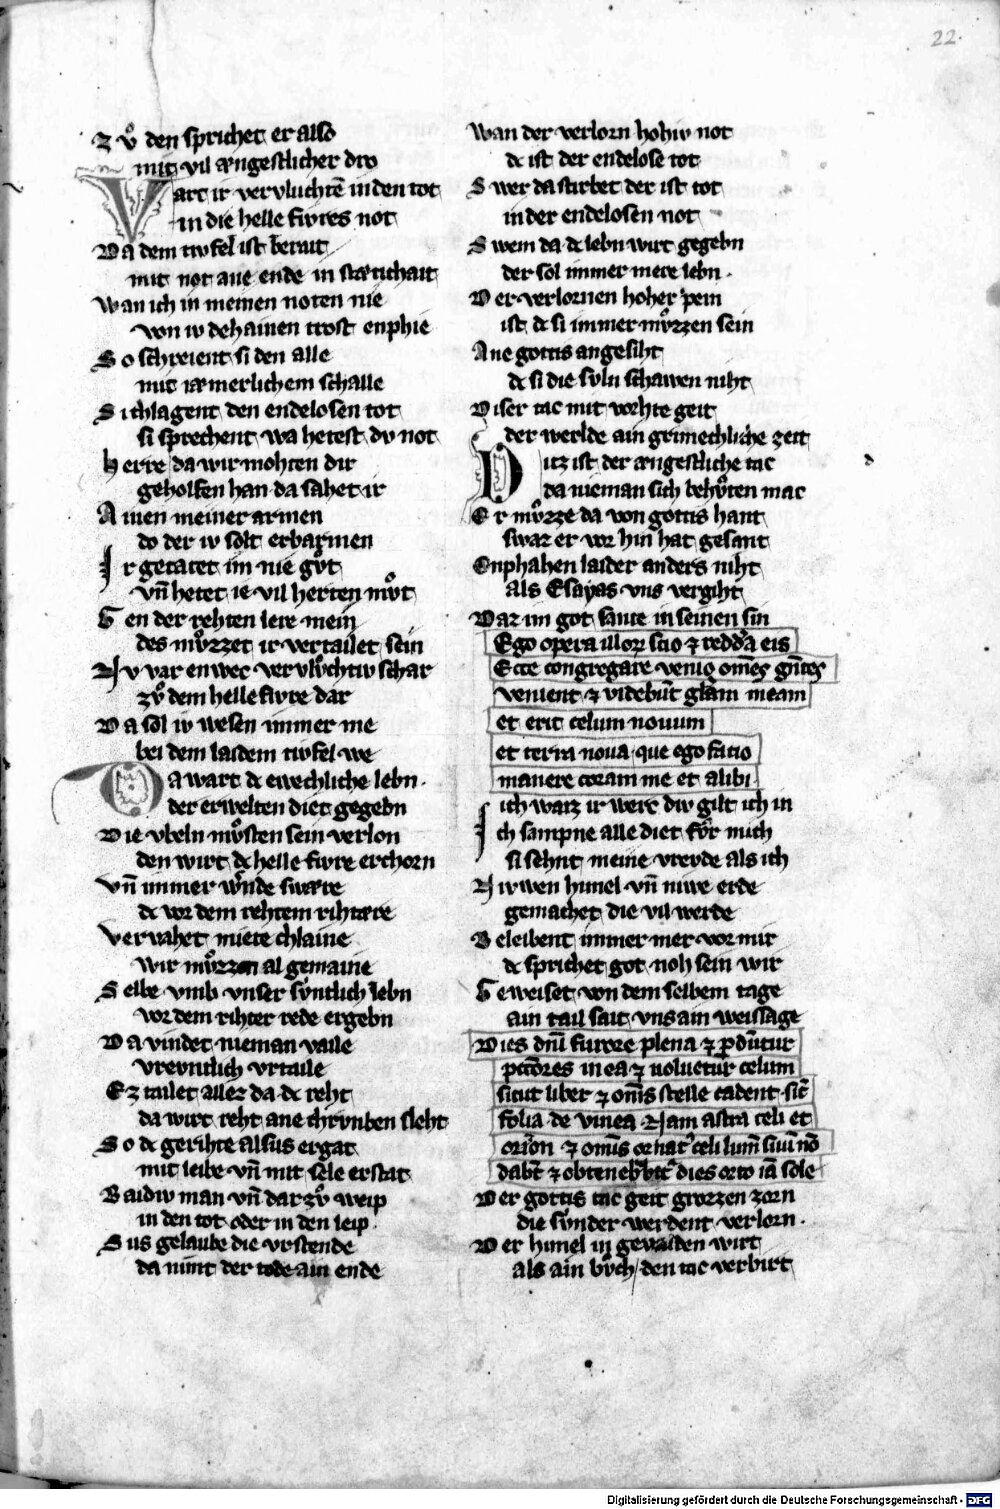 22.
Zvͦ den sprichet er also
mit vil ængestlicher dro
Vart ir vervluchtē in den tot
in die helle fivres not
Da dem tivfel ist berait
mit not ane ende in stætichait
Wan ich in meinen noten nie
von iv dehainen trost enphie
So schreient si den alle
mit iæmerlichem schalle
Si chlagent den endelosen tot
si sprechent wa hetest dv not
Herre da wir mohten dir
geholfen han da sahet ir
Ainen meiner armen
do der iv solt erbarmen
Ir getatet im nie gvͦt
vn̄ hetet ie vil herten mvͦt
Gen der rehten lere mein
des mvͦzzet ir vertailet sein
Nv var enwec vervlvͦchtiv schar
zvͦ dem helle fivre dar
Da solt iv wesen immer me
bei dem laidem tivfel we
Da wart dc ewechliche lebn.
der erwelten diet gegebn
Die vbeln mvͦsten sein verlorn
den wirt dc helle fivre erchorn
Vn̄ immer wͤrnde swære
dc vor dem rehtem rihtære
Vervahet miete chlaine
wir mvͦzzen al gemaine
Selbe vmb vnser svͤntlich lebn
vor dem rihter rede ergebn
Da vindet nieman vaile
vrevntlich vrtaile
Ez tailet allez da dc reht
da wirt reht ane chrvmben sleht
So dc gerihte alsus ergat
mit leibe vn̄ mit sele erstat
Baidiv man vn̄ dar zvͦ weip
in den tot oder in den leip.
Sus gelaube die vrstende
da nimt der tode ain ende
Wan der verlorn hohiv not
dc ist der endelose tot
Swer da stirbet der ist tot
in der endelosen not
Swem da dc lebn wirt gegebn
der sol immer mere lebn.
Der verlornen hoher pein
ist dc si immer mvͦzzen sein
Ane gottis angesiht
dc si die svln schawen niht
Diser tac mit vorhte geit
der werlde ain grimechliche zeit
Ditz ist der ængestliche tac
da nieman sich behvͦten mac
Er mvͦzze da von gottis hant
swaz er vor hin hat gesant
Enphahen laider anders niht
als Esayas vns vergiht
Daz im got sante in seinen sin
Ego opera illoꝝ scio ⁊ redd'a eis
Ecce congregare venio om̄es gn̄tes
venient ⁊ videbūt gl'am meam
et erit celum novum
et terra nova que ego facio
manere coram me et alibi.
ich waiz ir werc div gilt ich in
Ich sampne alle diet fvͤr mich
si sehnt meine vrevde als ich
Nivwen himel vn̄ niwe erde
gemachet die vil werde
Beleibent immer mer vor mir
dc sprichet got noh sein wir
Geweiset von dem selbem tage
ain tail sait vns ain weissage
Dies dn̄i furore plena ⁊ ꝑdūtur
pctōres in ea ⁊ voluetur celum
sicut liber ⁊ om̄s stelle cadent sic̄
folia de vinea Nam astra celi et
orion ⁊ om̄is ornat' celi lum̄ suū nō
dabt̄ ⁊ obtenebͣbit' dies orto iā sole
Der gottis tac geit grozzen zorn
die svͤnder werdent verlorn.
Der himel in gevalden wirt
als ain bvͦch den tac verbirt
Digitalisierung gefördert durch die Deutsche Forschungsgemeinschaft - DFG